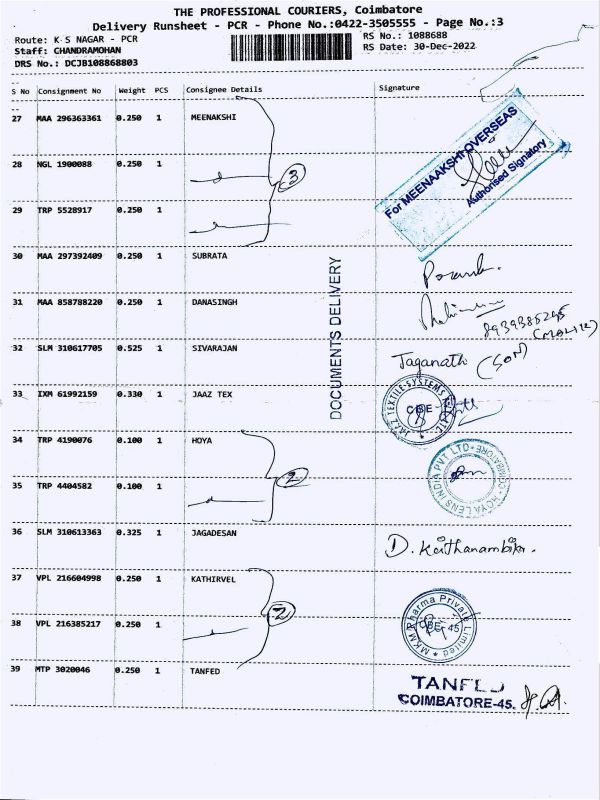 THE PROFESSIONAL COURIERS, Coimbatore
Delivery Runsheet - PCR - Phone No.:0422-3505555 - Page No.:3
Route: K S NAGAR - PCR
RS No.: 1088688
Staff: CHANDRAMOHAN
RS Date: 30-Dec-2022
DRS No.: DCJB108868803
S No Consignment No Weight PCS Consignee Details Signature
27 MAA 296363361 0.250 1 MEENAKSHI
For MEENAAKSHI OVERSEAS
Authorised Signatory
28 NGL 1900088 0.250 1
3
29 TRP 5528917 0.250 1
30 MAA 297392409 0.250 1 SUBRATA
DOCUMENTS DELIVERY
31 MAA 858788220 0.250 1 DANASINGH
8939385245
32 SLM 310617705 0.525 1 SIVARAJAN
Jaganath (SON)
33 IXM 61992159 0.330 1 JAAZ TEX
JAZZ TEXTILE SYSTEMS PRIVATE
CBE
34 TRP 4190076 0.100 1 HOYA
2
HOYA LENS INDIA PVT LTD
COIMBATORE
35 TRP 4404582 0.100 1
36 SLM 310613363 0.325 1 JAGADESAN
D. Kaithanambika.
37 VPL 216604998 0.250 1 KATHIRVEL
2
MKM Pharma Private Limited
CBE-45
38 VPL 216385217 0.250 1
39 MTP 3020046 0.250 1 TANFED
TANFED
COIMBATORE-45.